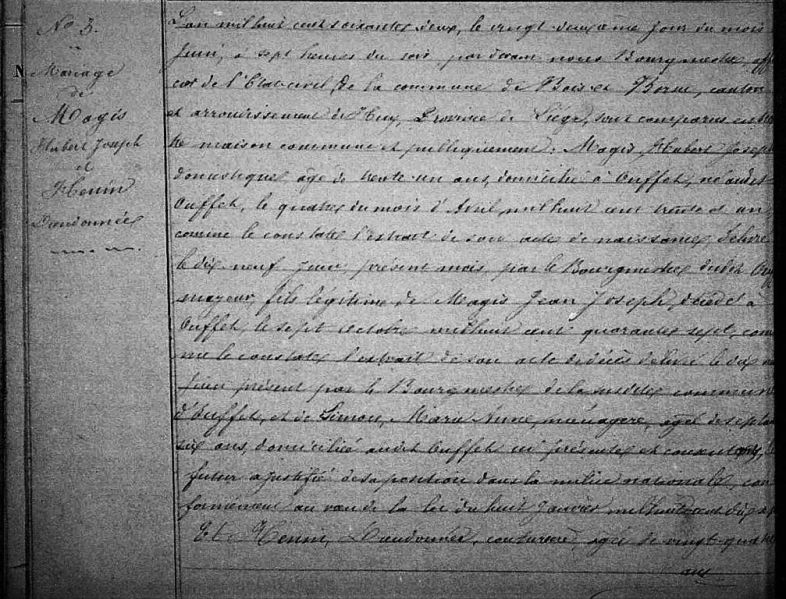 No 3.
Mariage
de
Magis
Hubert Joseph
et
Henin
Dieudonnée
L'an mil huit cent soixante deux, le vingt deuxième jour du mois
Juin, à sept heures du soir, par devant nous Bourgmestre, offi
cier de l'Etat civil de la commune de Bois et Borsu, canton
et arrondissement de Huy, Province de Liége, sont comparus en
maison commune et publiquement: Magis, Hubert Joseph
domestique, agé de trente un ans, domicilié à Ouffet, né audit
Ouffet, le quatre du mois d'Avril mil huit cent trente et un
comme le constate l'extrait de son acte de naissance, délivré
le dix neuf Juin, présent mois, par le Bourgmestre dudit
majeur, fils légitime de Magis Jean Joseph, décédé à
Ouffet, le sept octobre mil huit cent quarante sept, com
me le constate l'extrait de son acte de décès délivré le dix
Juin présent par le Bourgmestre de la susdite commune
d'Ouffet, et de Simon, Marie Anne, ménagère, agée de
six ans, domicilié audit Ouffet ici présente et consentante,
futur a justifié de sa position dans la milice nationale, con
formément au vœu de la loi du huit Janvier mil huit cent dix
Et Henin, Dieudonnée, couturière, agée de vingt quatre
ans